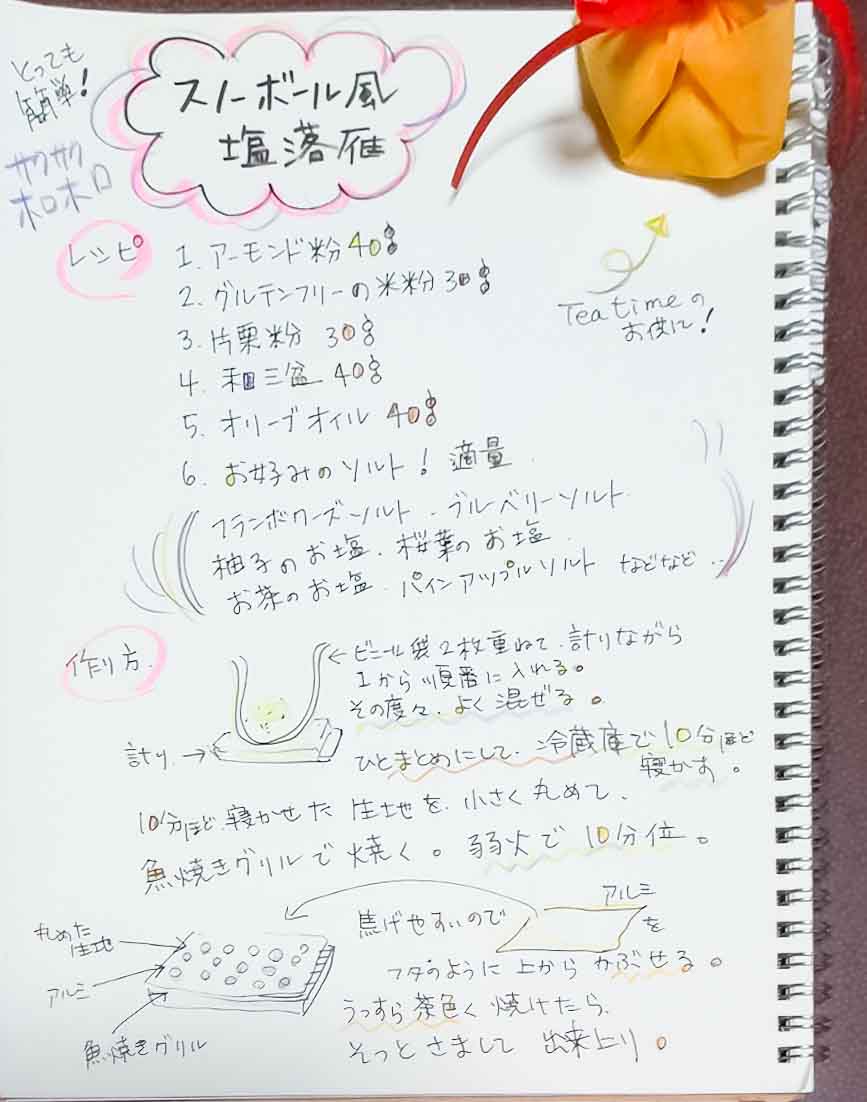 とっても
簡単!
スノーボール風
塩落雁
サクサク
ホロホロ
レシピ
1. アーモンド粉 40g
2. グルテンフリーの米粉 30g
3. 片栗粉 30g
4. 和三盆 40g
5. オリーブオイル 40g
6. お好みのソルト! 適量
Tea timeの
お供に!
フランボワーズソルト、ブルーベリーソルト
柚子のお塩、桜葉のお塩
お茶のお塩、パインアップルソルト などなど..
作り方
←ビニール袋2枚重ねて、計りながら
1から順番に入れる。
その度々、よく混ぜる。
計り→
ひとまとめにして、冷蔵庫で10分ほど
寝かす。
10分ほど寝かせた生地を小さく丸めて、
魚焼きグリルで焼く。弱火で10分位。
丸めた
生地
アルミ
魚焼きグリル
アルミ
焦げやすいので を
フタのように上からかぶせる。
うっすら茶色く焼けたら、
そっとさまして 出来上り。